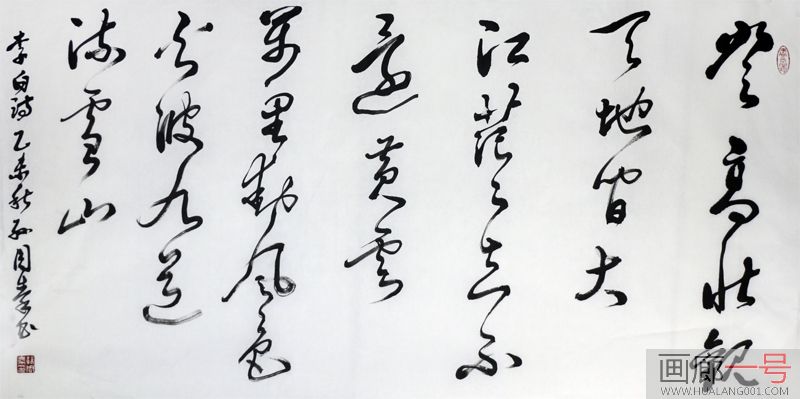 登高壮觀
天地间大
江茫々去不
還黄雲
萬里動風色
白波九道
流雪山
李白诗乙未秋孙
画廊一号
WWW.HUALANG001.COM